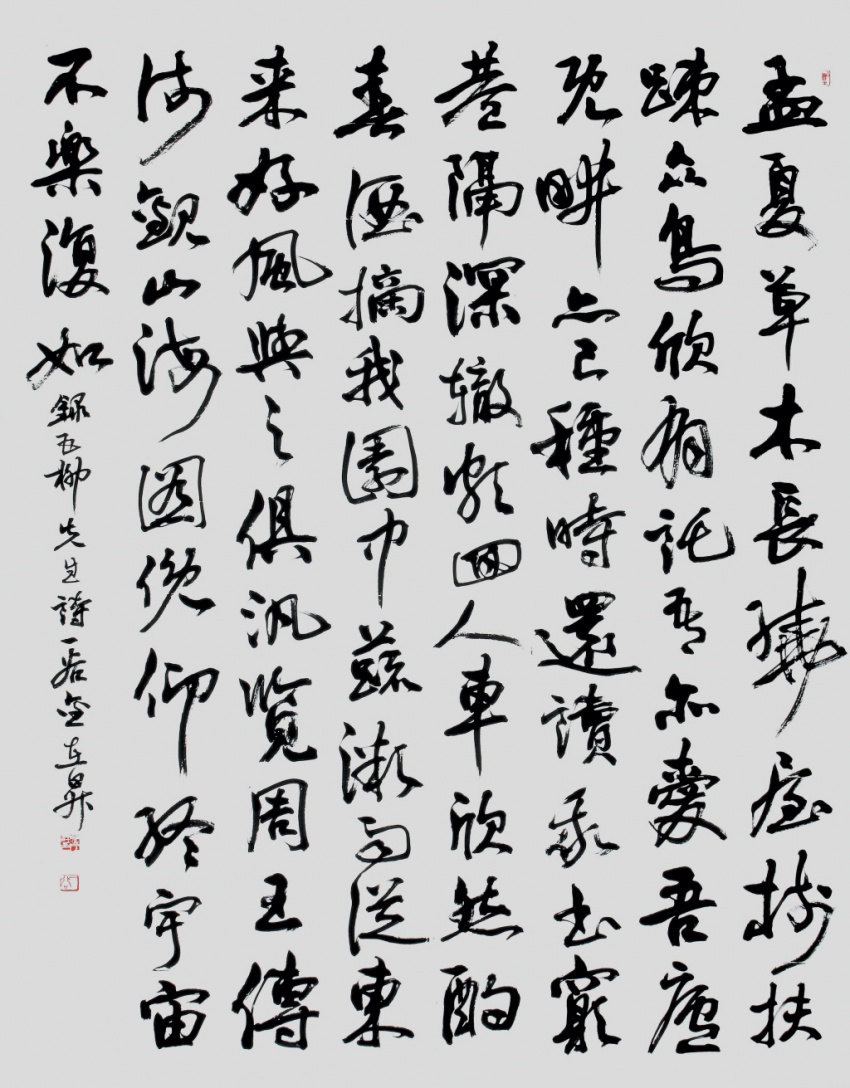 孟夏草木長繞屋樹扶
疎众鳥欣有託吾亦愛吾廬
既畊亦已種時還讀我书窮
巷隔深辙頗回人車欣然酌
春酒摘我園中蔬微雨從東
来好風與之俱汎覽周王傳
流觀山海圖俛仰終宇宙
不樂復如
錄五柳先生詩一首